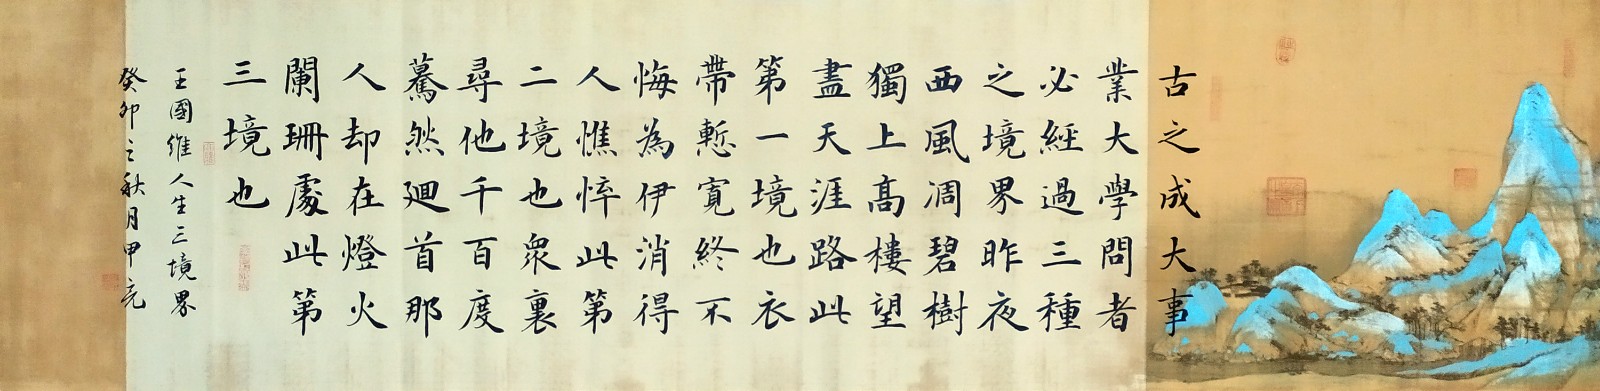 古之成大事
業大學問者
必經過三種
之境界昨夜
西風凋碧樹
獨上髙樓望
盡天涯路此
第一境也衣
帶慙寬終不
悔為伊消得
人憔悴此第
二境也衆裏
尋他千百度
驀然廻首那
人却在燈火
闌珊處此第
三境也
王國維人生三境界
癸卯之秋月甲亮